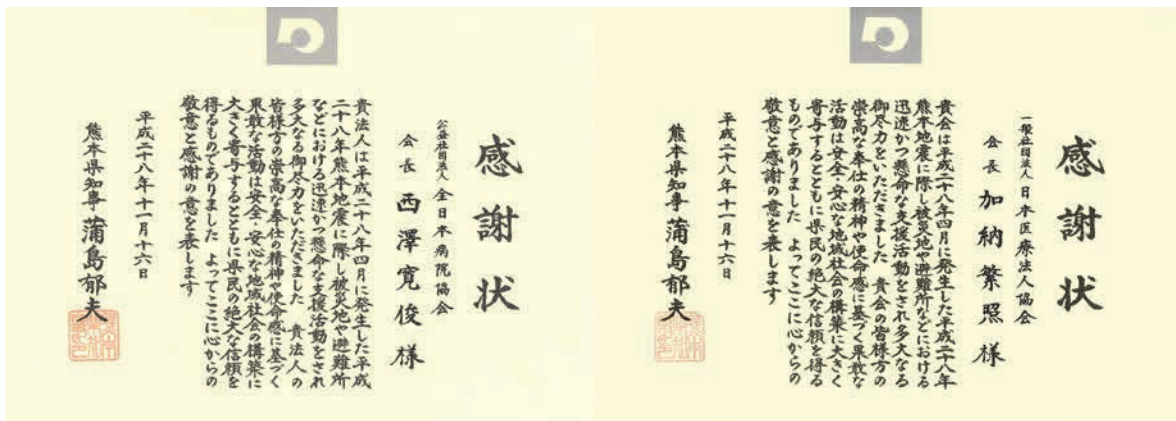 感謝状
公益社団法人 全日本病院協会
会長 西澤寛俊様
貴法人は平成二十八年四月に発生した平成
二十八年熊本地震に際し被災地や避難所
などにおける迅速かつ懸命な支援活動をされ
多大なる御尽力をいただきました 貴法人の
皆様方の崇高な奉仕の精神や使命感に基づく
果敢な活動は安全・安心な地域社会の構築に
大きく寄与するとともに県民の絶大な信頼を
得るものでありました よってここに心からの
敬意と感謝の意を表します
平成二十八年十一月十六日
熊本県知事 蒲島郁夫
感謝状
一般社団法人 日本医療法人協会
会長 加納繁照様
貴会は平成二十八年四月に発生した平成二十八年
熊本地震に際し被災地や避難所などにおける
迅速かつ懸命な支援活動をされ多大なる
御尽力をいただきました 貴会の皆様方の
崇高な奉仕の精神や使命感に基づく果敢な
活動は安全・安心な地域社会の構築に大きく
寄与するとともに県民の絶大な信頼を得る
ものでありました よってここに心からの
敬意と感謝の意を表します
平成二十八年十一月十六日
熊本県知事 蒲島郁夫